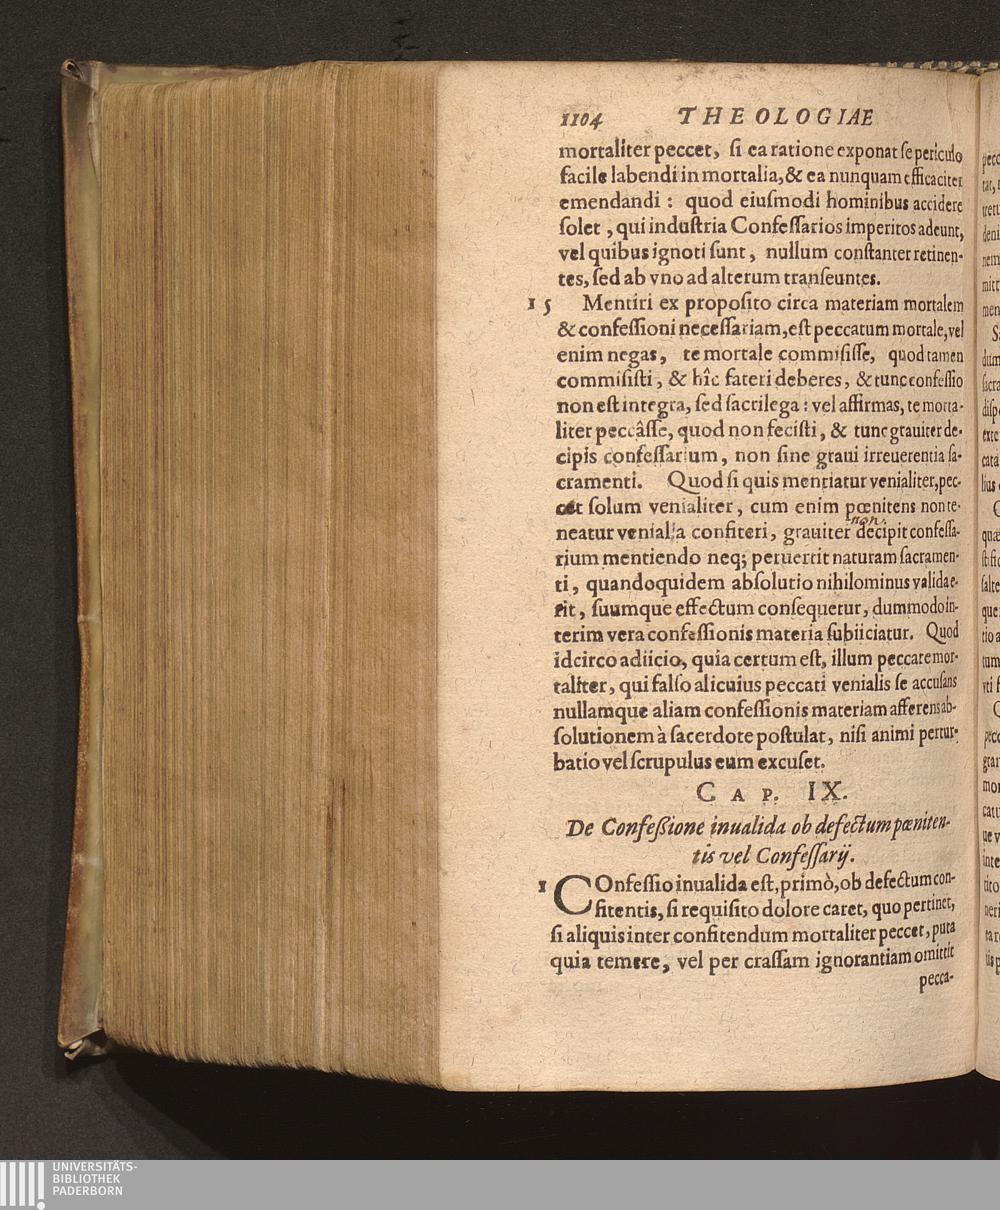 1104 THEOLOGIAE
mortaliter peccet, ſi ea ratione exponat ſe periculo
facile labendi in mortalia, & ea nunquam efficaciter
emendandi : quod eiuſmodi hominibus accidere
ſolet , qui induſtria Confeſſarios imperitos adeunt,
vel quibus ignoti ſunt , nullum conſtanter retinen-
tes, ſed ab vno ad alterum tranſeuntes.
15 Mentiri ex propoſito circa materiam mortalem
& confeſſioni neceſſariam, eſt peccatum mortale, vel
enim negas, te mortale commiſiſſe, quod tamen
commiſiſti, & hîc fateri deberes, & tunc confeſſio
non eſt integra, ſed ſacrilega : vel affirmas, te morta-
liter peccâſſe, quod non feciſti, & tunc grauiter de-
cipis confeſſarium, non ſine graui irreuerentia ſa-
cramenti. Quod ſi quis mentiatur venialiter, pec-
cet ſolum venialiter, cum enim pœnitens non te-
neatur venialia confiteri, grauiter non decipit confeſſa-
rium mentiendo neq; peruertit naturam ſacramen-
ti, quandoquidem abſolutio nihilominus valida e-
rit, ſuumque effectum conſequetur, dummodo in-
terim vera confeſſionis materia ſubiiciatur. Quod
idcirco adiicio, quia certum eſt, illum peccare mor-
taliter, qui falſo alicuius peccati venialis ſe accuſans
nullamque aliam confeſſionis materiam afferens ab-
ſolutionem à ſacerdote poſtulat, niſi animi pertur-
batio vel ſcrupulus eum excuſet.
CAP. IX.
De Confeßione inualida ob defectum pœniten-
tis vel Confeſſarij.
1 COnfeſſio inualida eſt, primò, ob defectum con-
fitentis, ſi requiſito dolore caret, quo pertinet,
ſi aliquis inter confitendum mortaliter peccet, puta
quia temere, vel per craſſam ignorantiam omittit
pecca-
UNIVERSITÄTS-
BIBLIOTHEK
PADERBORN